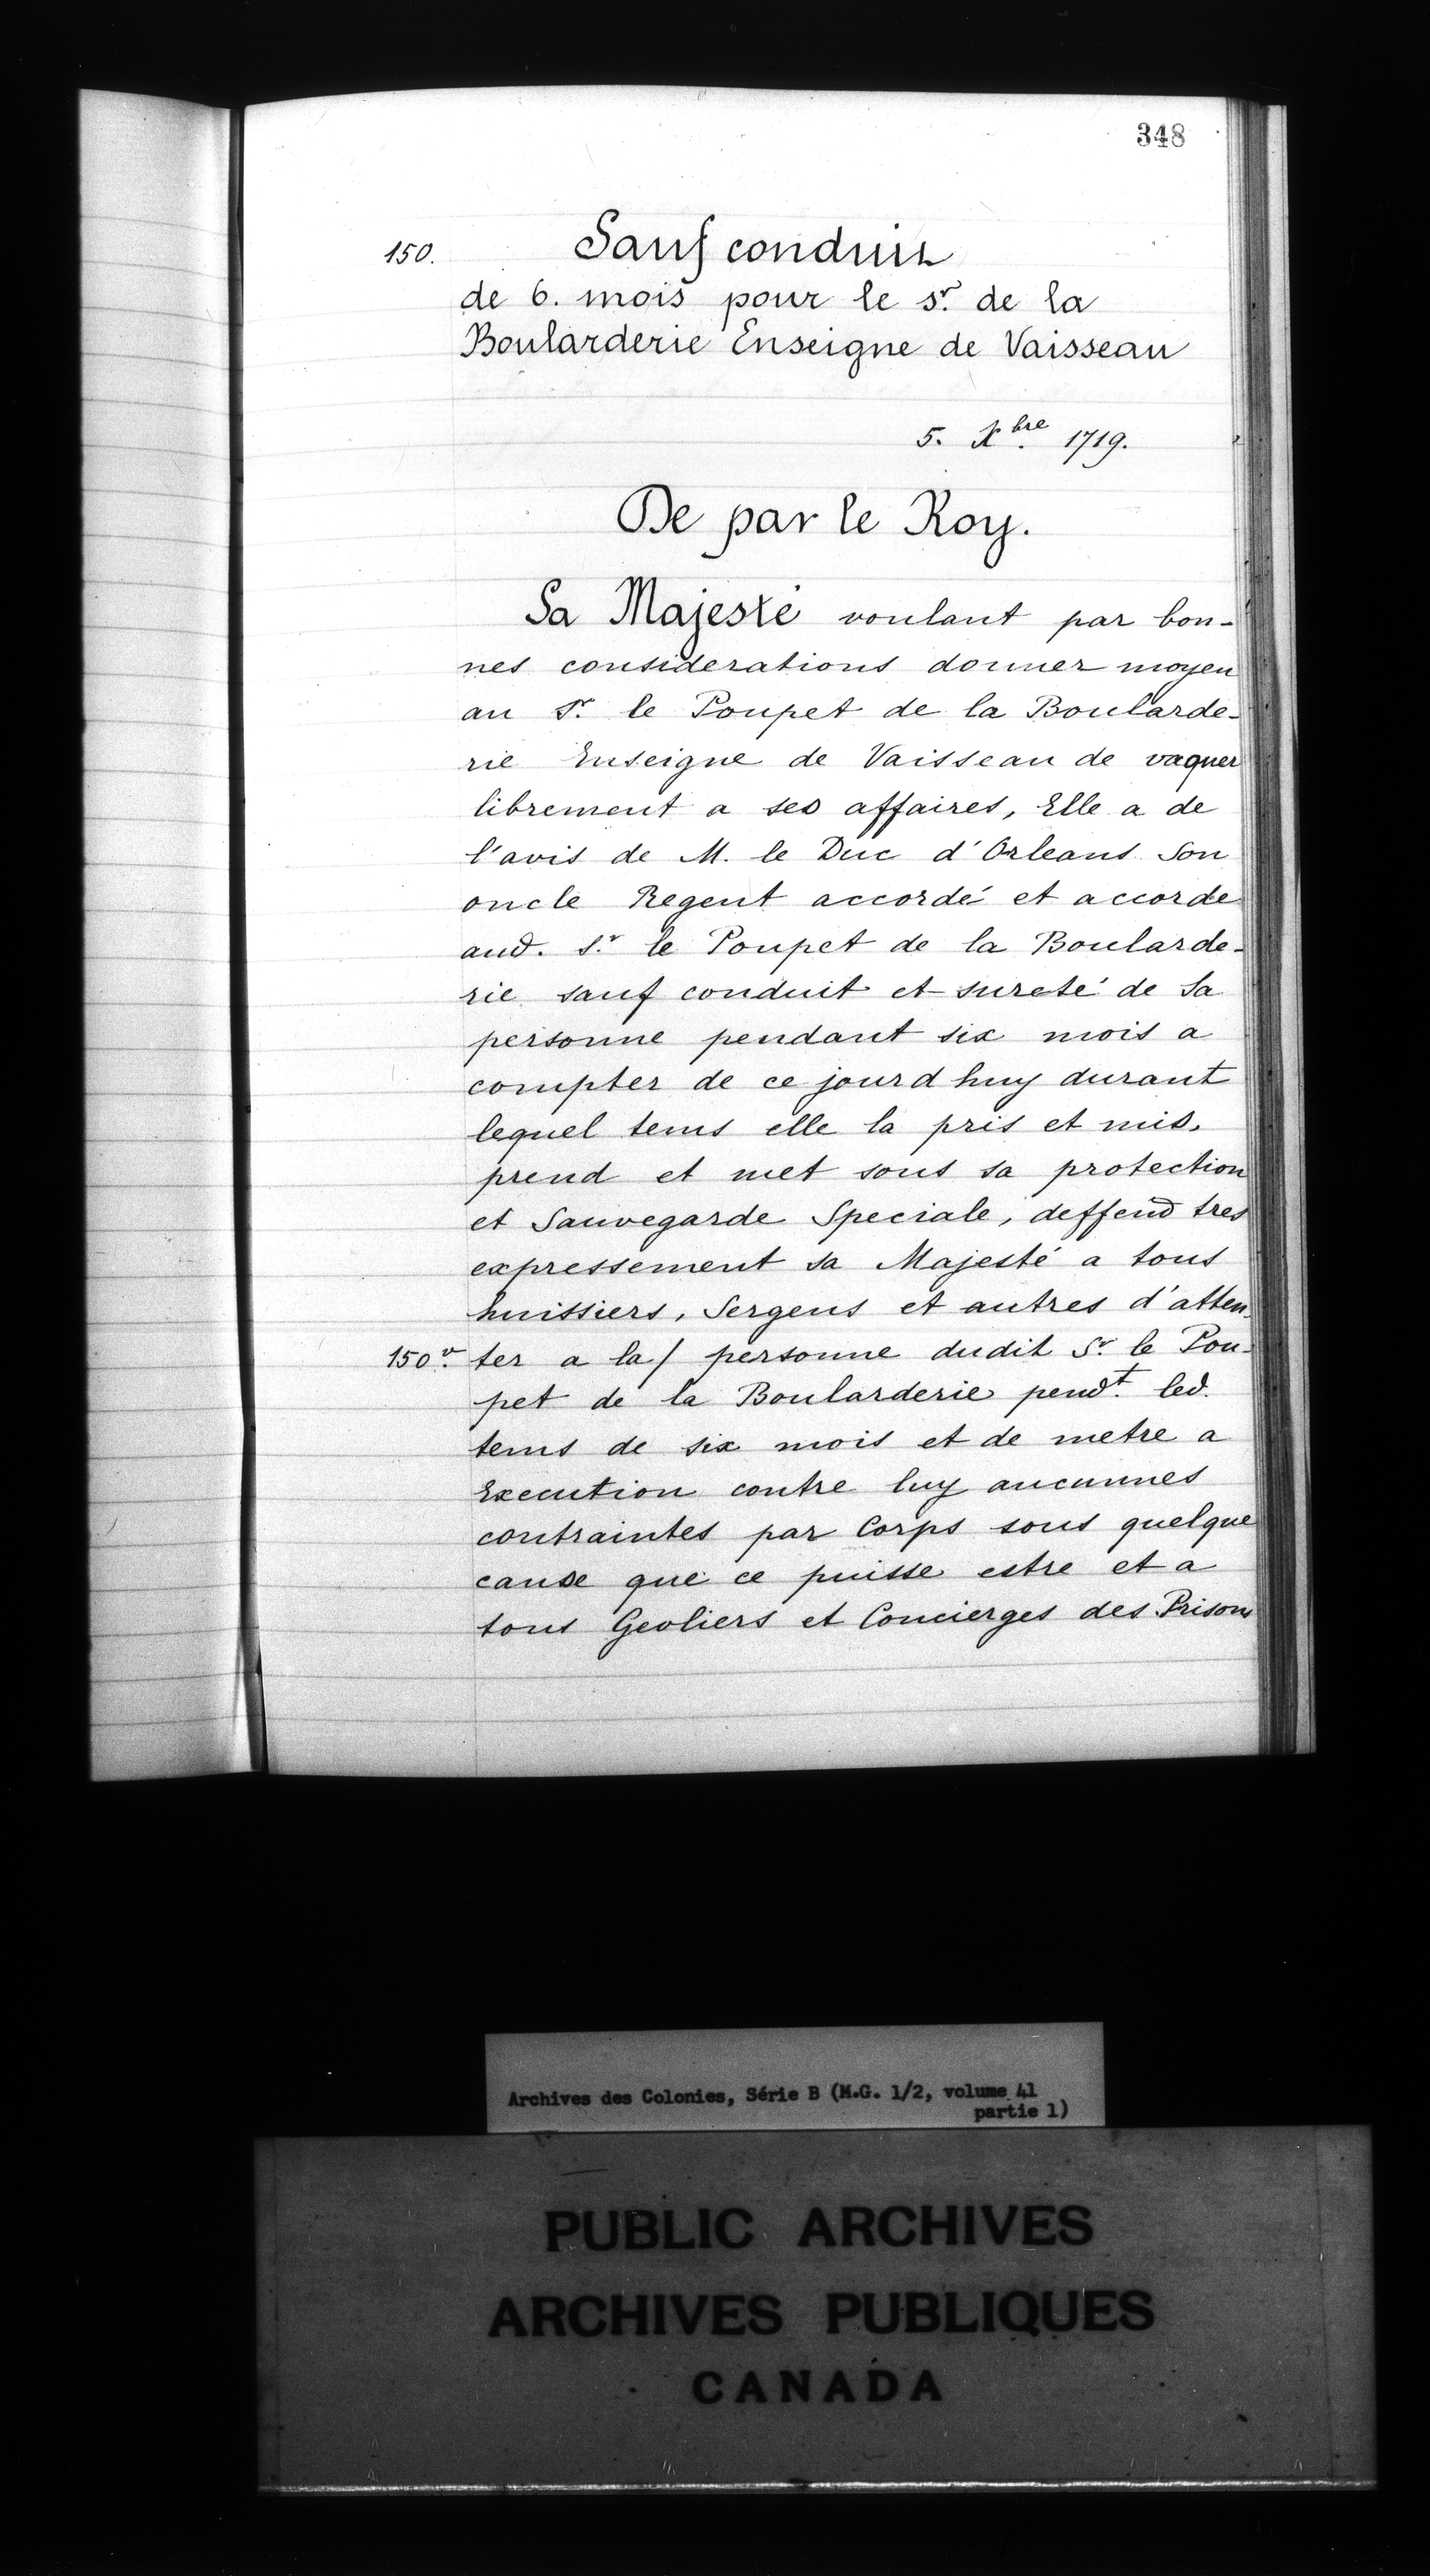 348
150. Sauf conduit
de 6. mois pour le sr. de la
Boularderie Enseigne de Vaisseau
5. Xbre. 1719.
De par le Roy.
Sa Majesté voulant par bon-
nes considerations donner moyen
au Sr. le Poupet de la Boularde-
rie Enseigne de Vaisseau de vaquer
librement a ses affaires, Elle a de
l'avis de M. le Duc d'Orleans Son
oncle Regent accordé et accorde
aud. Sr. le Poupet de la Boularde-
rie sauf conduit et sureté de Sa
personne pendant six mois a
compter de ce jourd huy durant
lequel tems elle la pris et mis,
prend et met sous sa protection
et Sauvegarde Speciale, deffend tres
expressement sa Majesté a tous
huissiers, Sergens et autres d'atten-
150v. ter a la/ personne dudit Sr. le Pou-
pet de la Boularderie pendt. led.
tems de six mois et de metre a
Execution contre luy aucunnes
contraintes par Corps sous quelque
cause que ce puisse estre et a
tous Geoliers et Concierges des Prisons
Archives des Colonies, Série B (M.G. 1/2, volume 41
partie 1)
PUBLIC ARCHIVES
ARCHIVES PUBLIQUES
CANADA